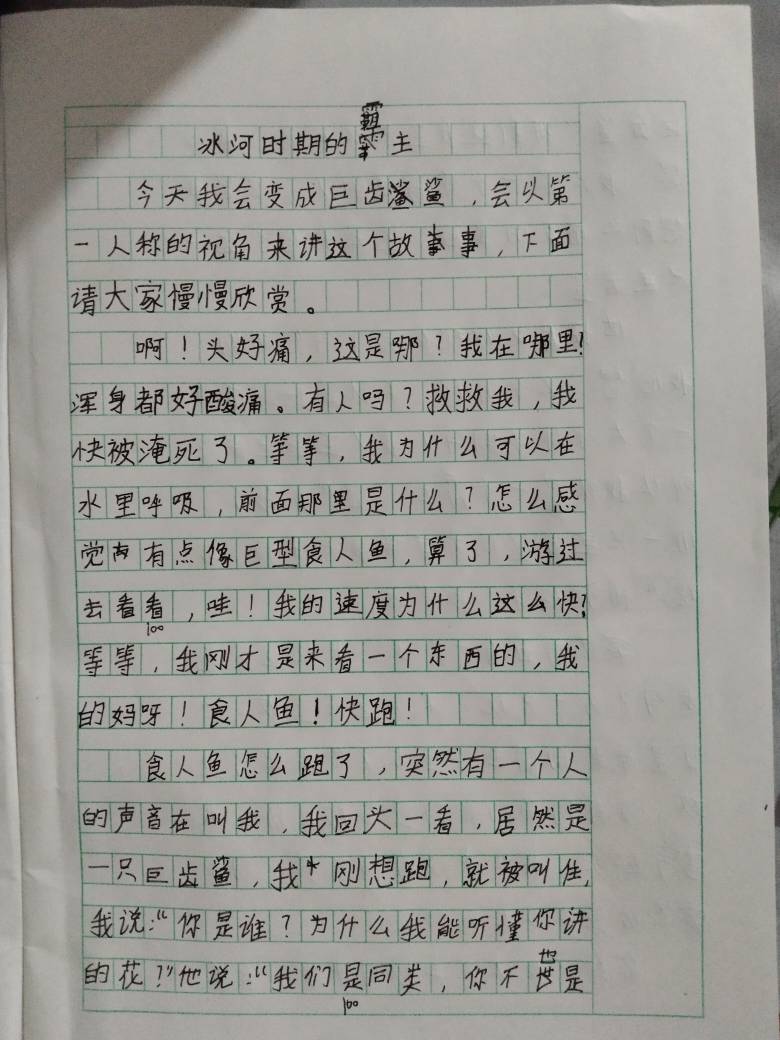 冰河时期的霸主
今天我会变成巨齿鲨鲨，会以第
一人称的视角来讲这个故事事，下面
请大家慢慢欣赏。
啊！头好痛，这是哪？我在哪里！
浑身都好酸痛。有人吗？救救我，我
快被淹死了。等等，我为什么可以在
水里呼吸，前面那里是什么？怎么感
觉有点像巨型食人鱼，算了，游过
去看看，哇！我的速度为什么这么快？
100
等等，我刚才是来看一个东西的，我
的妈呀！食人鱼！快跑！
食人鱼怎么跑了，突然有一个人
的声音在叫我，我回头一看，居然是
一只巨齿鲨，我刚想跑，就被叫住，
我说：“你是谁？为什么我能听懂你讲
的花？”他说：“我们是同类，你不也是
100